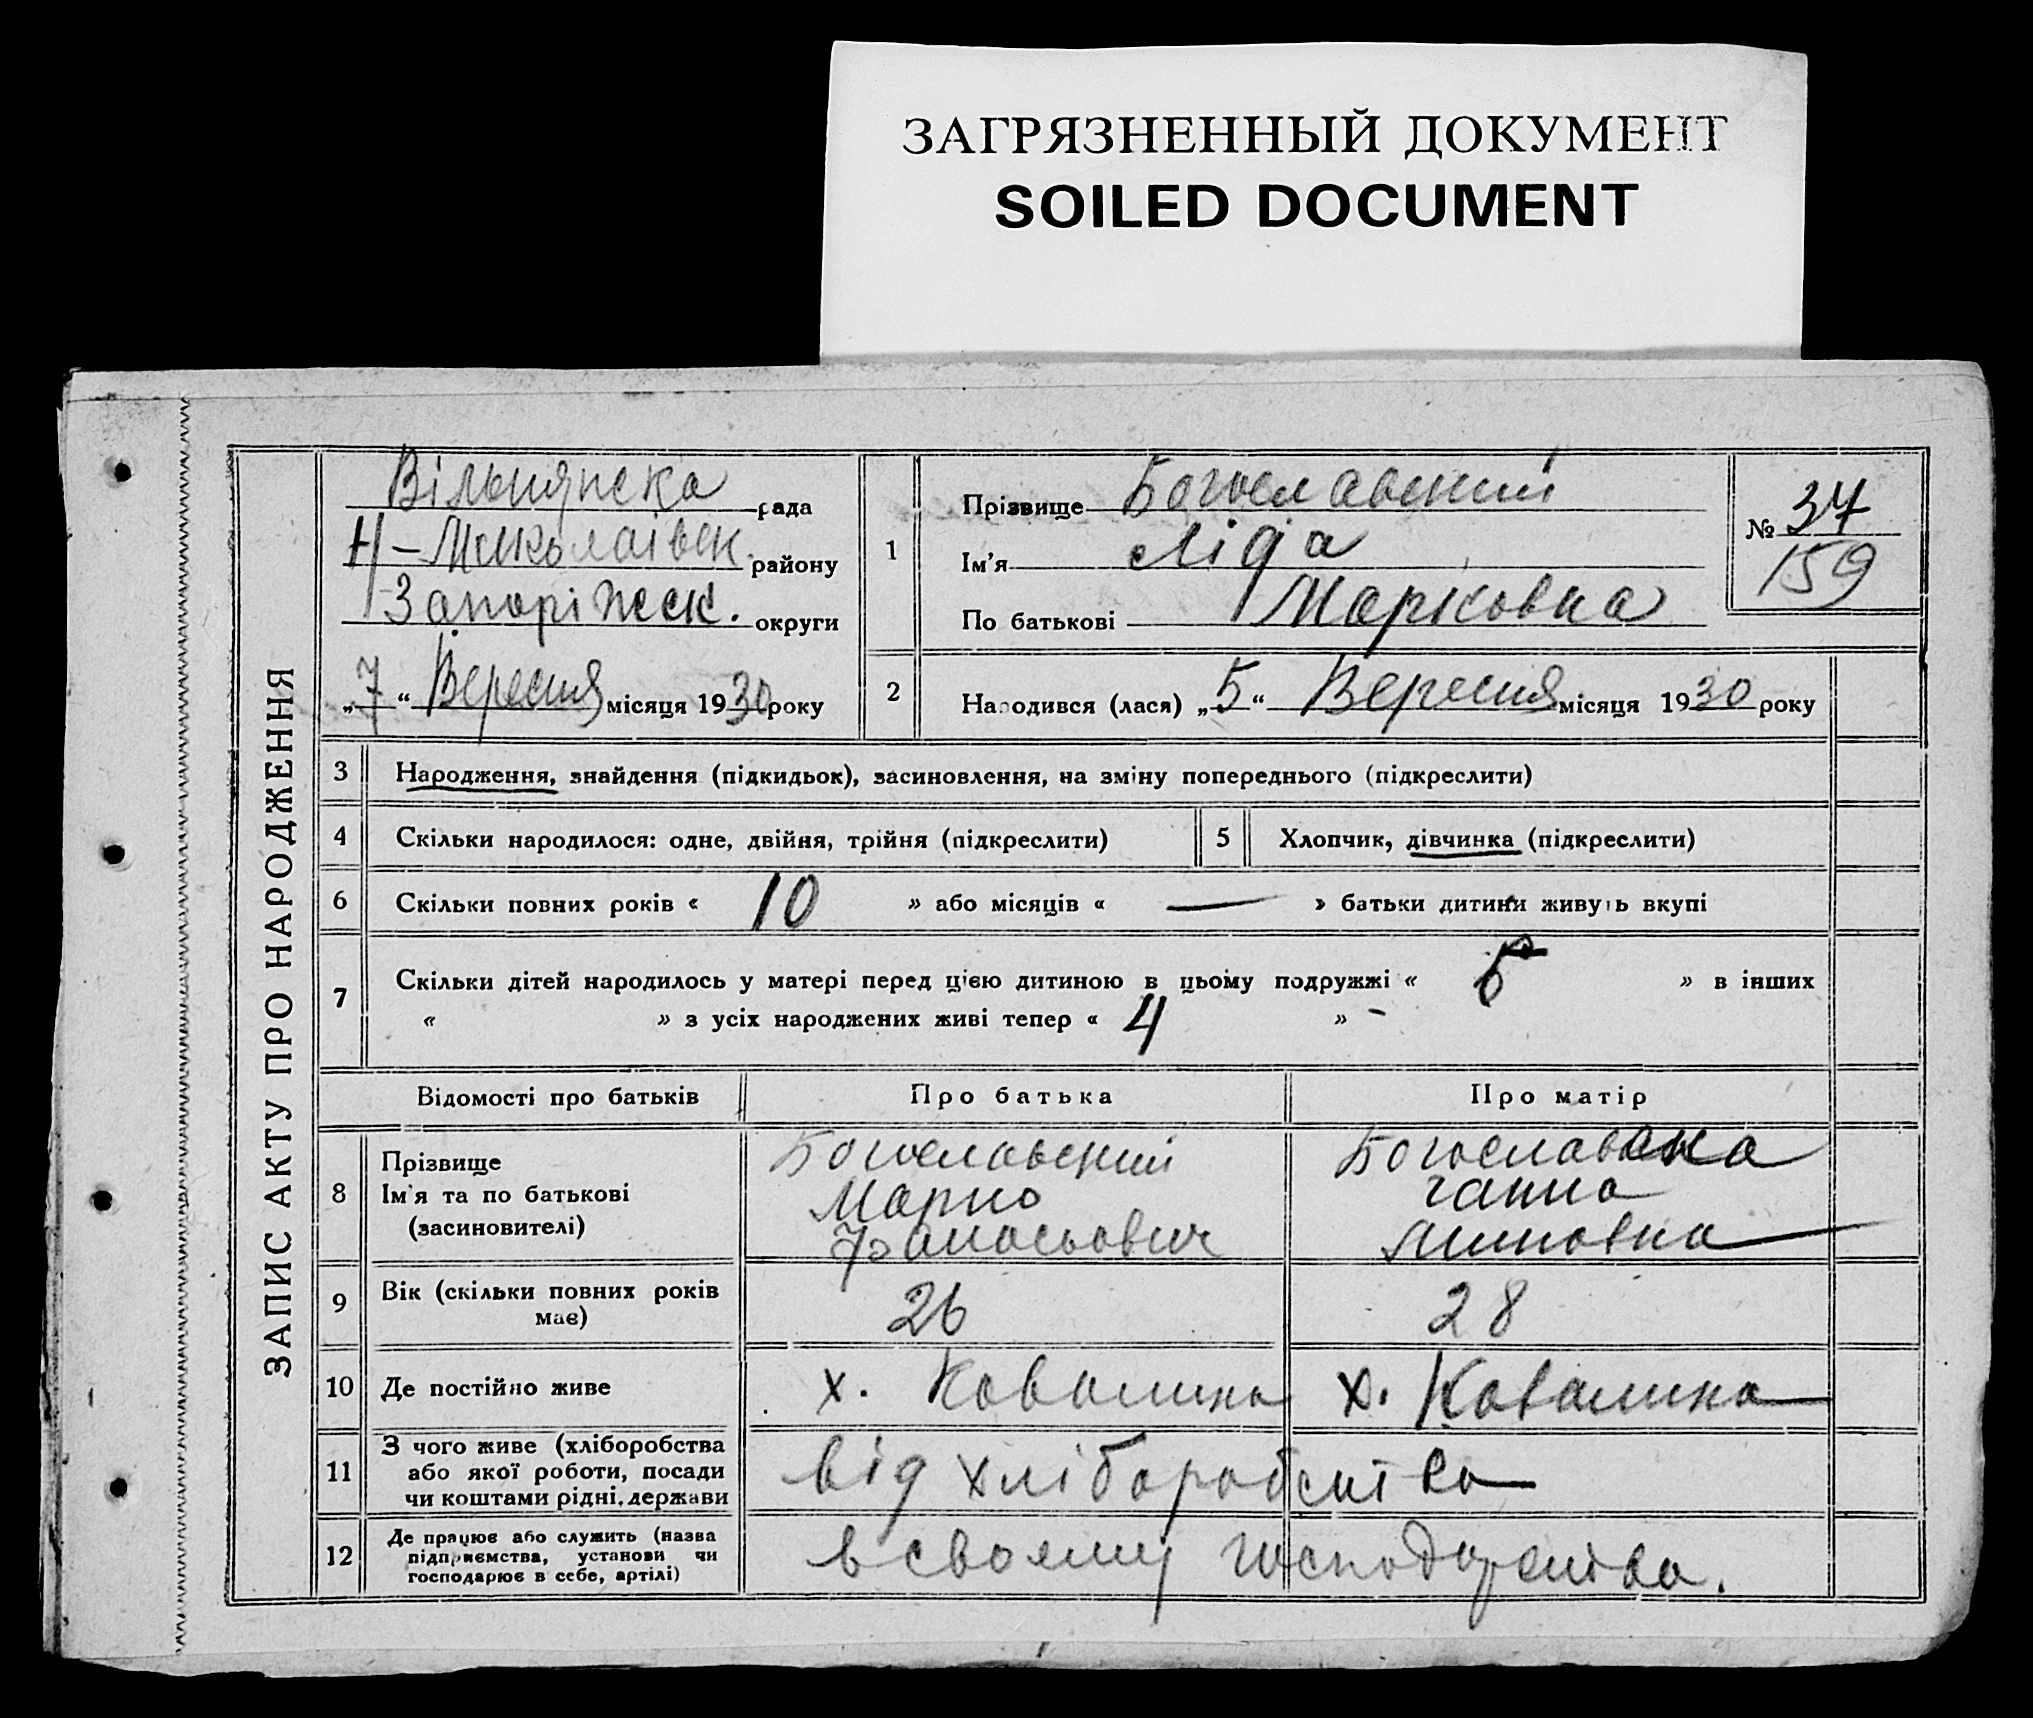 ЗАГРЯЗНЕННЫЙ ДОКУМЕНТ
SOILED DOCUMENT
ЗАПИС АКТУ ПРО НАРОДЖЕННЯ
Вільнянська рада
Н-Миколаївськ. району
Запоріжськ. округи
„7“ Вересня місяця 1930 року
1
Прізвище Богославский
Ім'я Ліда
По батькові Марковна
№ 37
159
2 Народився (лася) „5“ Вересня місяця 1930 року
3 Народження, знайдення (підкидьок), засиновлення, на зміну попереднього (підкреслити)
4 Скільки народилося: одне, двійня, трійня (підкреслити) 5 Хлопчик, дівчинка (підкреслити)
6 Скільки повних років « 10 » або місяців « — » батьки дитини живуть вкупі
7 Скільки дітей народилось у матері перед цією дитиною в цьому подружжі « 5 » в інших
« » з усіх народжених живі тепер « 4 » -
Відомості про батьків Про батька Про матір
8 Прізвище Богославский Богославска
Ім'я та по батькові Марко Ганна
(засиновителі)
9 Вік (скільки повних років 26 28
має)
10 Де постійно живе х. Ковалика х. Ковалика
11 З чого живе (хліборобства від хліборобства
або якої роботи, посади
чи коштами рідні, держави
12 Де працює або служить (назва в своєму господарства.
підприємства, установи чи
господарює в себе, артілі)